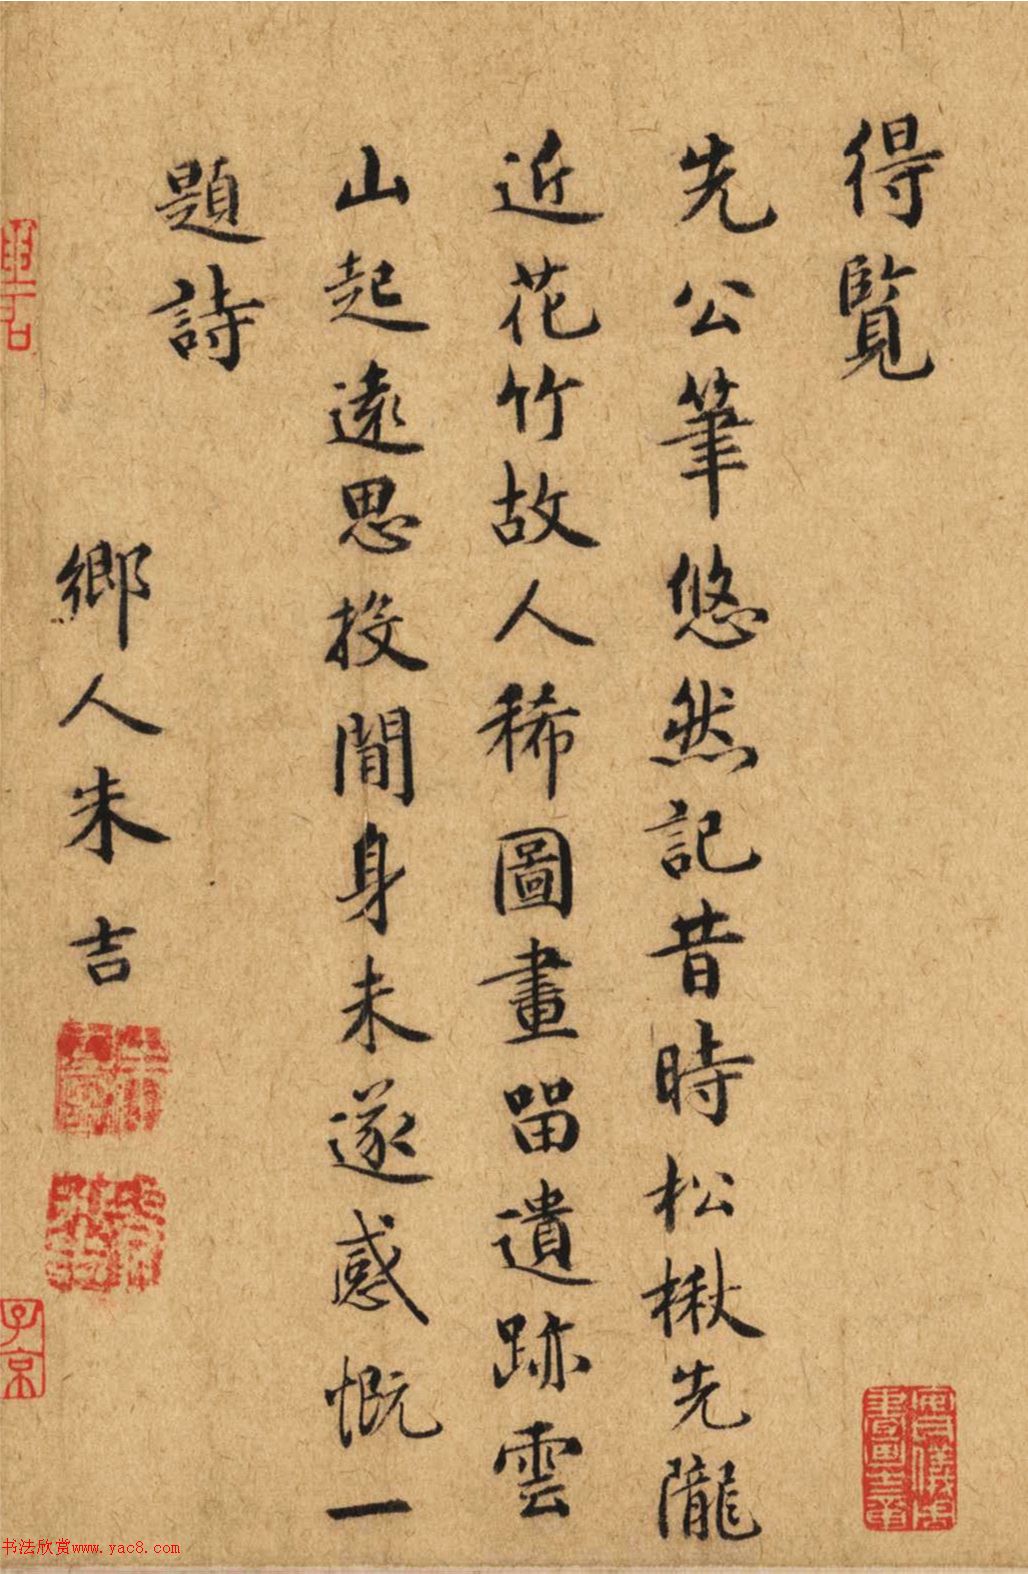 得覽
先公筆悠然記昔時松楸先隴
近花竹故人稀圖畫留遺跡雲
山起遠思投閒身未遂感慨一
題詩
鄉人朱吉
子京
书法欣赏www.yac8.com